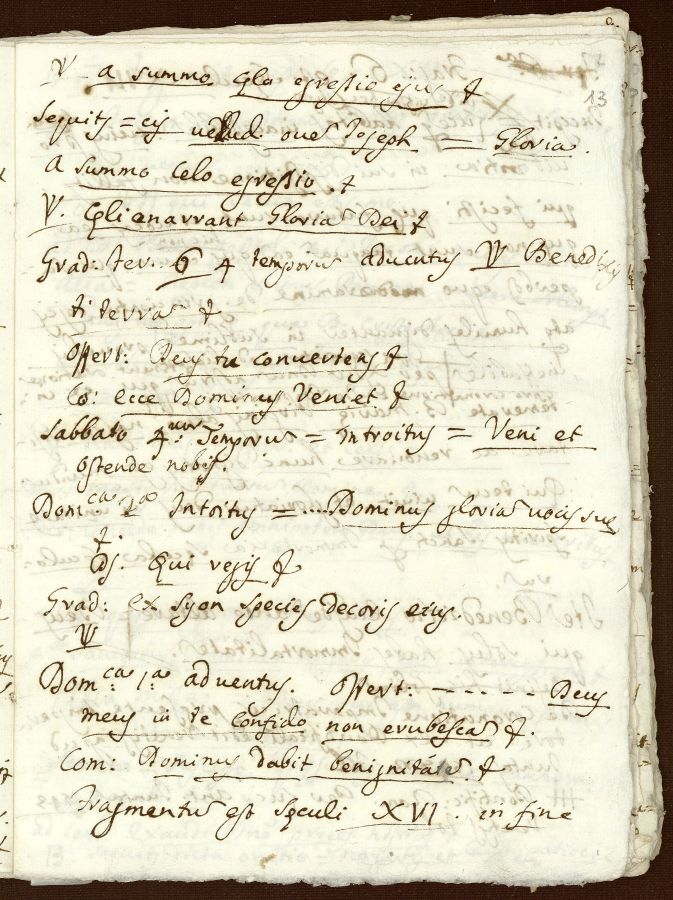 13
V a summo Cęlo egressio ejus &
Sequits = ejs velud oves Joseph = Gloria.
A summo Celo egressio &
V. Cęli enarrant Gloria Dei &
Grad: fer. 6 4 temporus adventus V Benedixis
ti terra &
Offert: Deus tu convertens &
Co: ecce Dominus Veniet &
Sabbato 4uor Temporus = Introitus = Veni et
Ostende nobis.
Domca 1a Introitus = .... Dominus gloria vocis suę
&
Ps. Qui regis &
Grad: ex Syon species decoris eius.
V
Domca 1a adventus. Offert: - - - - - - Deus
meus in te Confido non erubesca &.
Com: Dominus dabit benignitate &
Fragmentus est Sęculi XVI. in fine